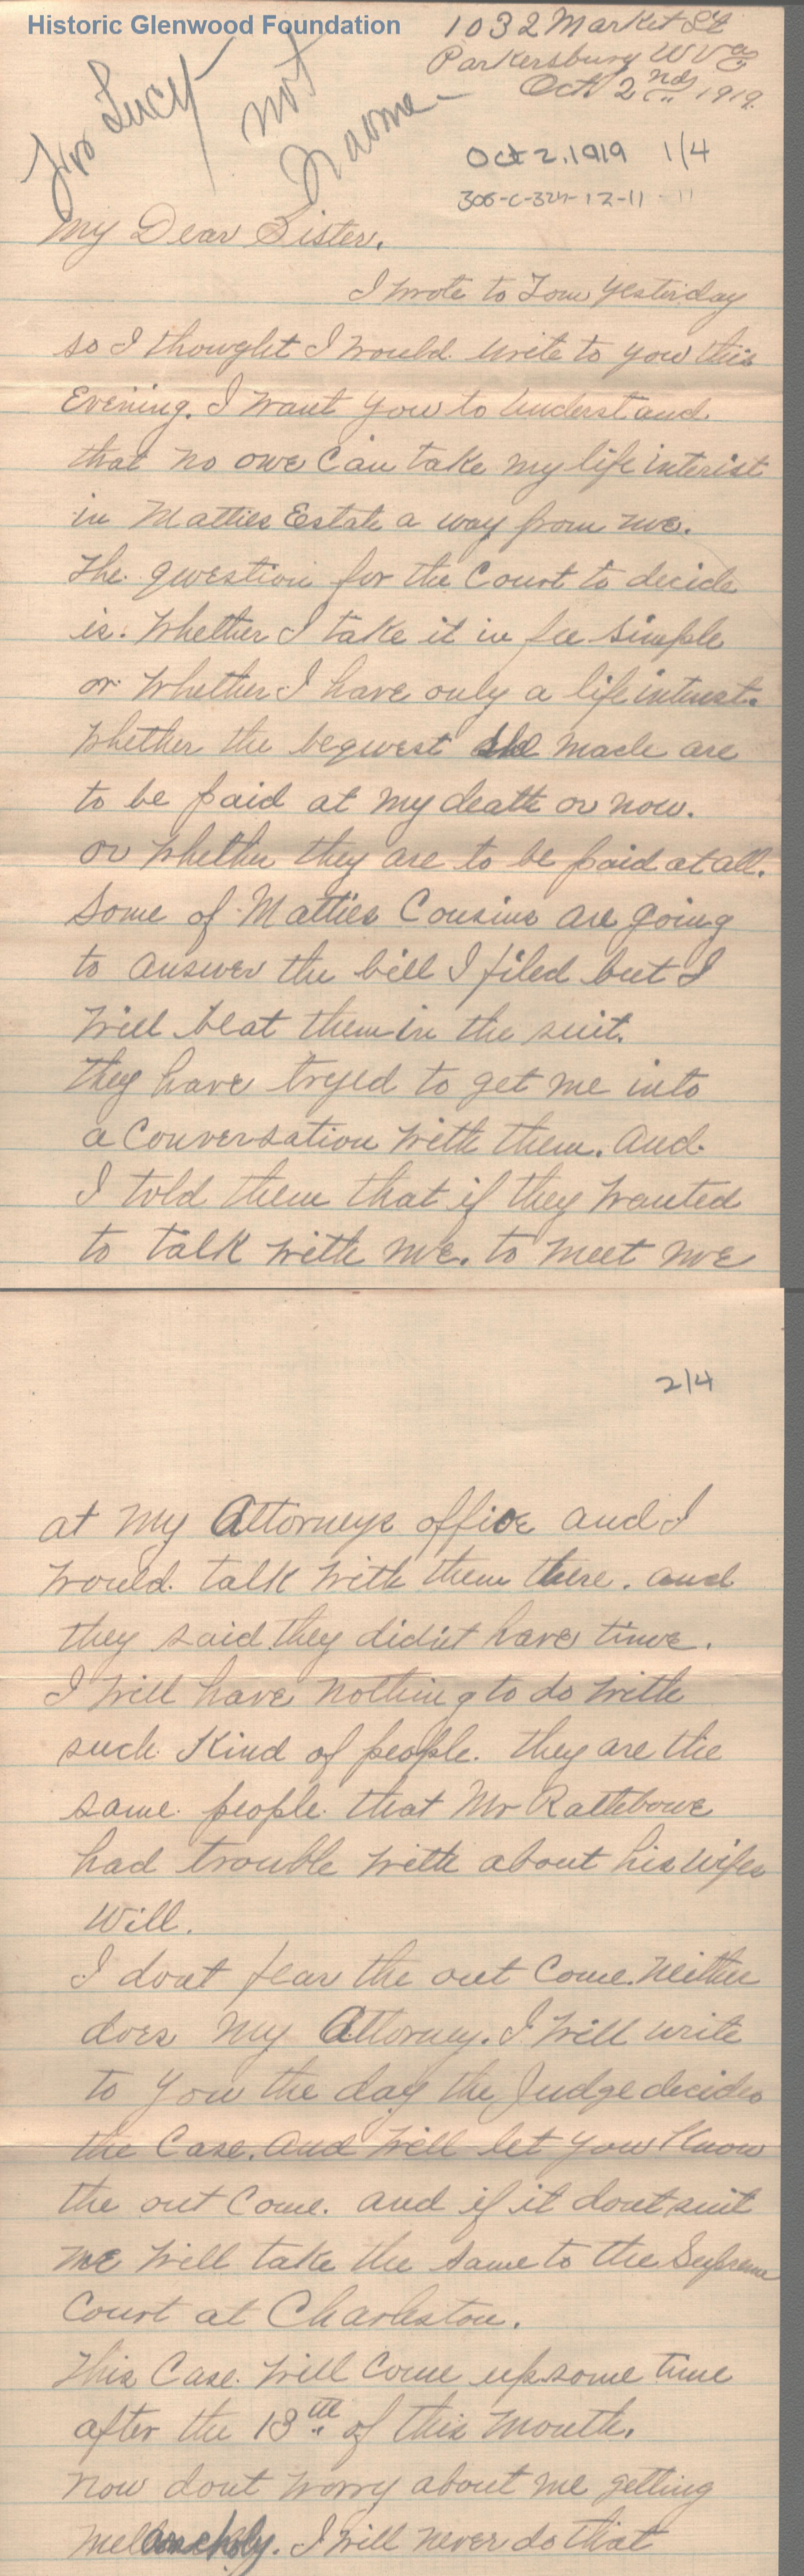 Historic Glenwood Foundation
1032 Market St
Parkersburg W Va
Oct. 2nd 1919.
For Lucy
not
Naomi
Oct 2, 1919 1/4
306-C-324-12-11
My Dear Sister.
I wrote to Tom yesterday
so I thought I would write to you this
Evening. I want you to understand
that no one can take my life interist
in Matties Estate a way from me.
The question for the Court to decide
is. Whether I take it in fee simple
or whether I have only a life intrest.
Whether the bequest she made are
to be paid at my death or now.
or whether they are to be paid at all.
Some of Matties Cousins are going
to answer the bill I filed but I
will beat them in the suit.
They have tryed to get me into
a Conversation with them. And
I told them that if they wanted
to talk with me. to meet me
2/4
at my Attorneys office and I
would talk with them there. and
they said they didnt have time.
I will have nothing to do with
such Kind of people. they are the
same people that Mr Rathbone
had trouble with about his wifes
Will.
I dont fear the out Come. Neither
does my Attorney. I will write
to you the day the Judge decides
the Case. And will let you Know
the out Come. and if it dont suit
me will take the same to the Supreme
Court at Charleston.
This Case will Come up some time
after the 13th of this Month.
Now dont worry about me getting
melancholy. I will never do that